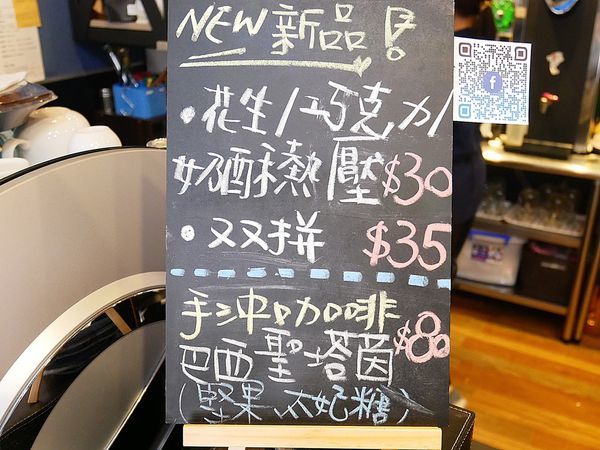 NEW 新品!
·花生/巧克力/
奶酥熱壓$30
·双拼 $35
手沖咖啡
巴西聖塔茵$80
(堅果、太妃糖)